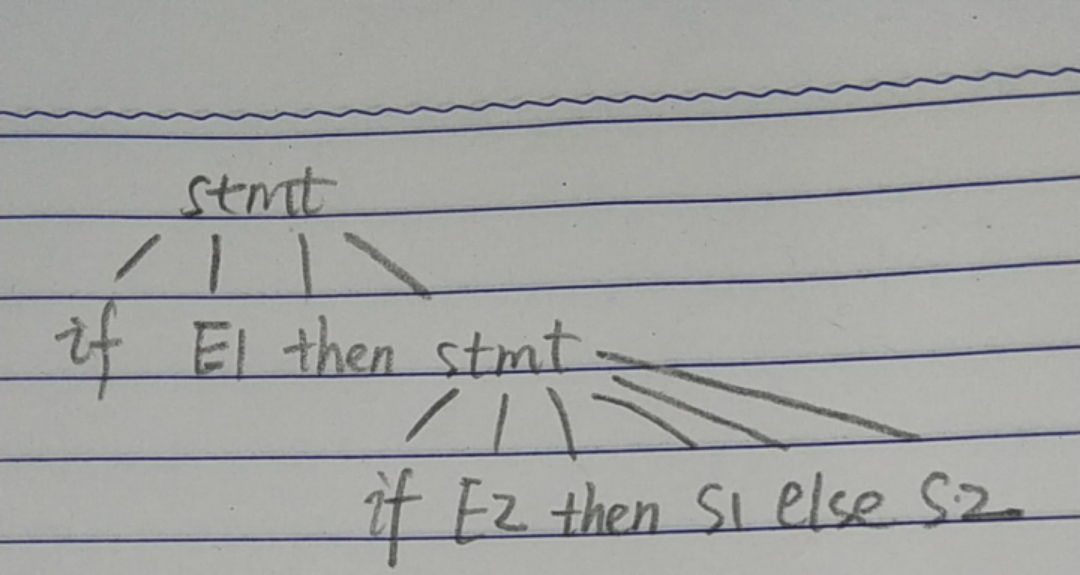 stmt
if E1 then stmt
if E2 then S1 else S2